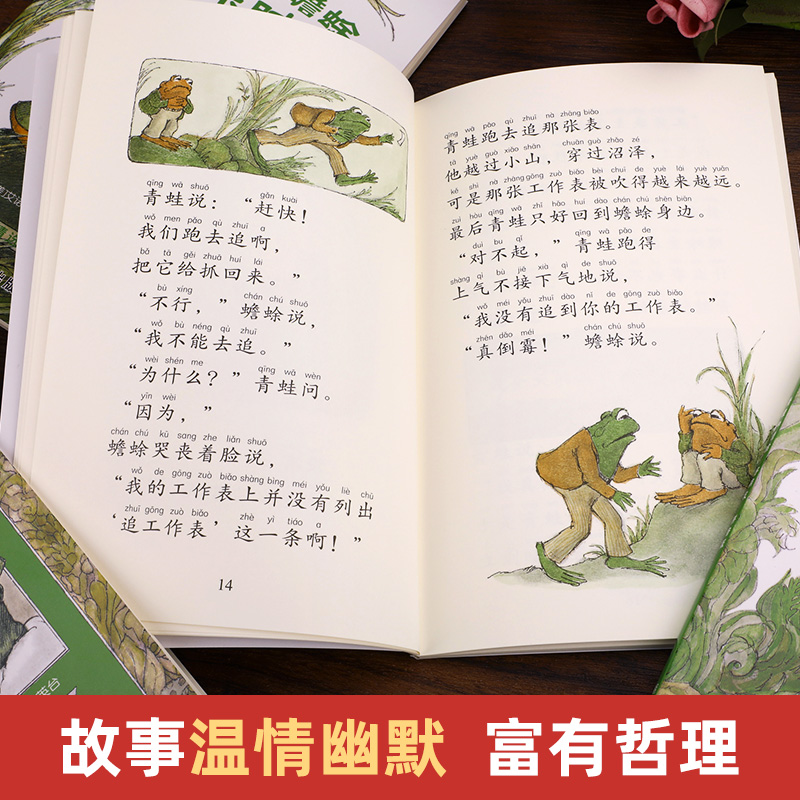 qīng wā shuō gǎn kuài
青蛙说：“赶快！
wǒ men pǎo qù zhuī a
我们跑去追啊，
bǎ tā gěi zhuā huí lái
把它给抓回来。”
bù xíng chán chú shuō
“不行，”蟾蜍说，
wǒ bù néng qù zhuī
“我不能去追。”
wèi shén me qīng wā wèn
“为什么？”青蛙问。
yīn wèi
“因为，”
chán chú kū sang zhe liǎn shuō
蟾蜍哭丧着脸说，
wǒ de gōng zuò biǎo shàng bìng méi yǒu liè chū
“我的工作表上并没有列出
zhuī gōng zuò biǎo zhè yì tiáo a
‘追工作表’这一条啊！”
14
qīng wā pǎo qù zhuī nà zhāng biǎo
青蛙跑去追那张表。
tā yuè guò xiǎo shān chuān guò zhǎo zé
他越过小山，穿过沼泽，
kě shì nà zhāng gōng zuò biǎo bèi chuī de yuè lái yuè yuǎn
可是那张工作表被吹得越来越远。
zuì hòu qīng wā zhǐ hǎo huí dào chán chú shēn biān
最后青蛙只好回到蟾蜍身边。
duì bu qǐ qīng wā pǎo de
“对不起，”青蛙跑得
shàng qì bù jiē xià qì de shuō
上气不接下气地说，
wǒ méi yǒu zhuī dào nǐ de gōng zuò biǎo
“我没有追到你的工作表。”
zhēn dǎo méi chán chú shuō
“真倒霉！”蟾蜍说。
英台
故事温情幽默 富有哲理